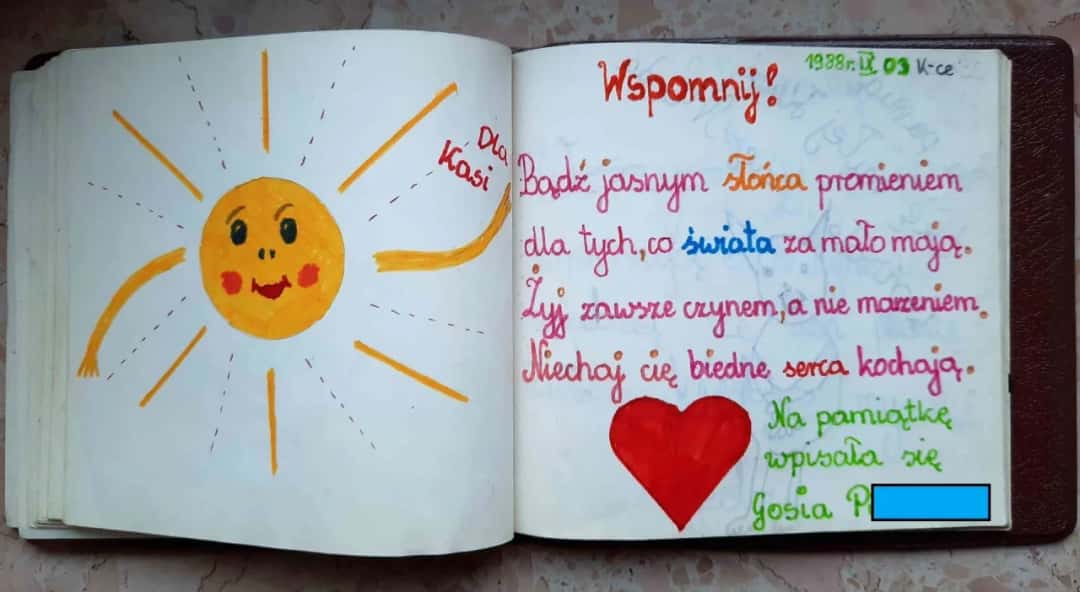 Dla
Kasi
Wspomnij!
1988r. IX 03 K-ce
Bądź jasnym słońca promieniem
dla tych, co świata za mało mają.
Żyj zawsze czynem, a nie marzeniem.
Niechaj cię biedne serca kochają.
Na pamiątkę
wpisała się
Gosia